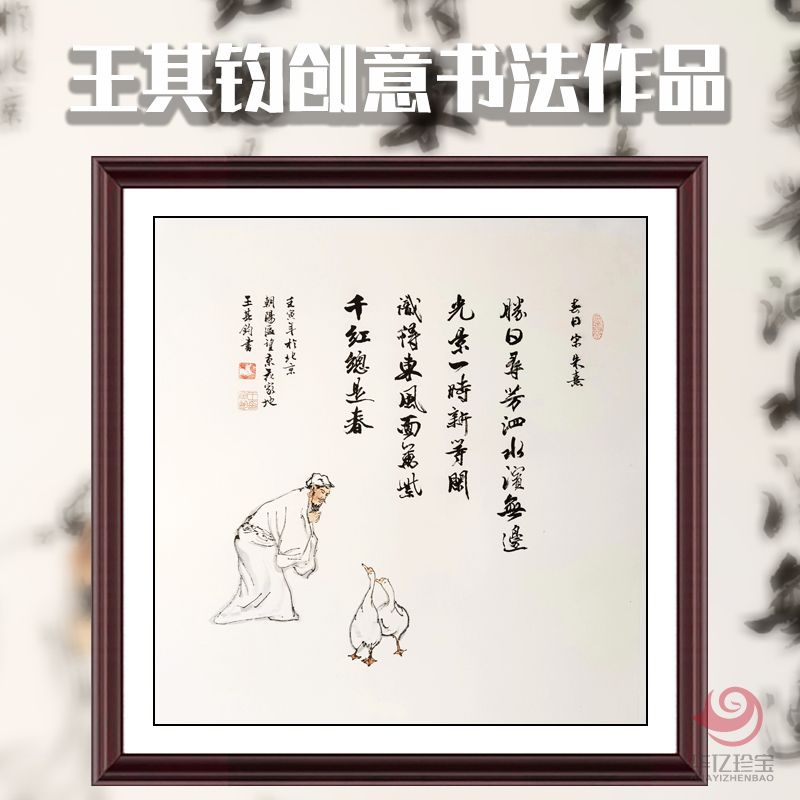 王其钧创意书法作品
春日 宋 朱熹
勝日尋芳泗水濱無邊
光景一時新等閑
識得東風面萬紫
千紅總是春
壬寅年於北京
朝陽區望京花家地
王其鈞書
亿珍宝
AYIZHENBAO